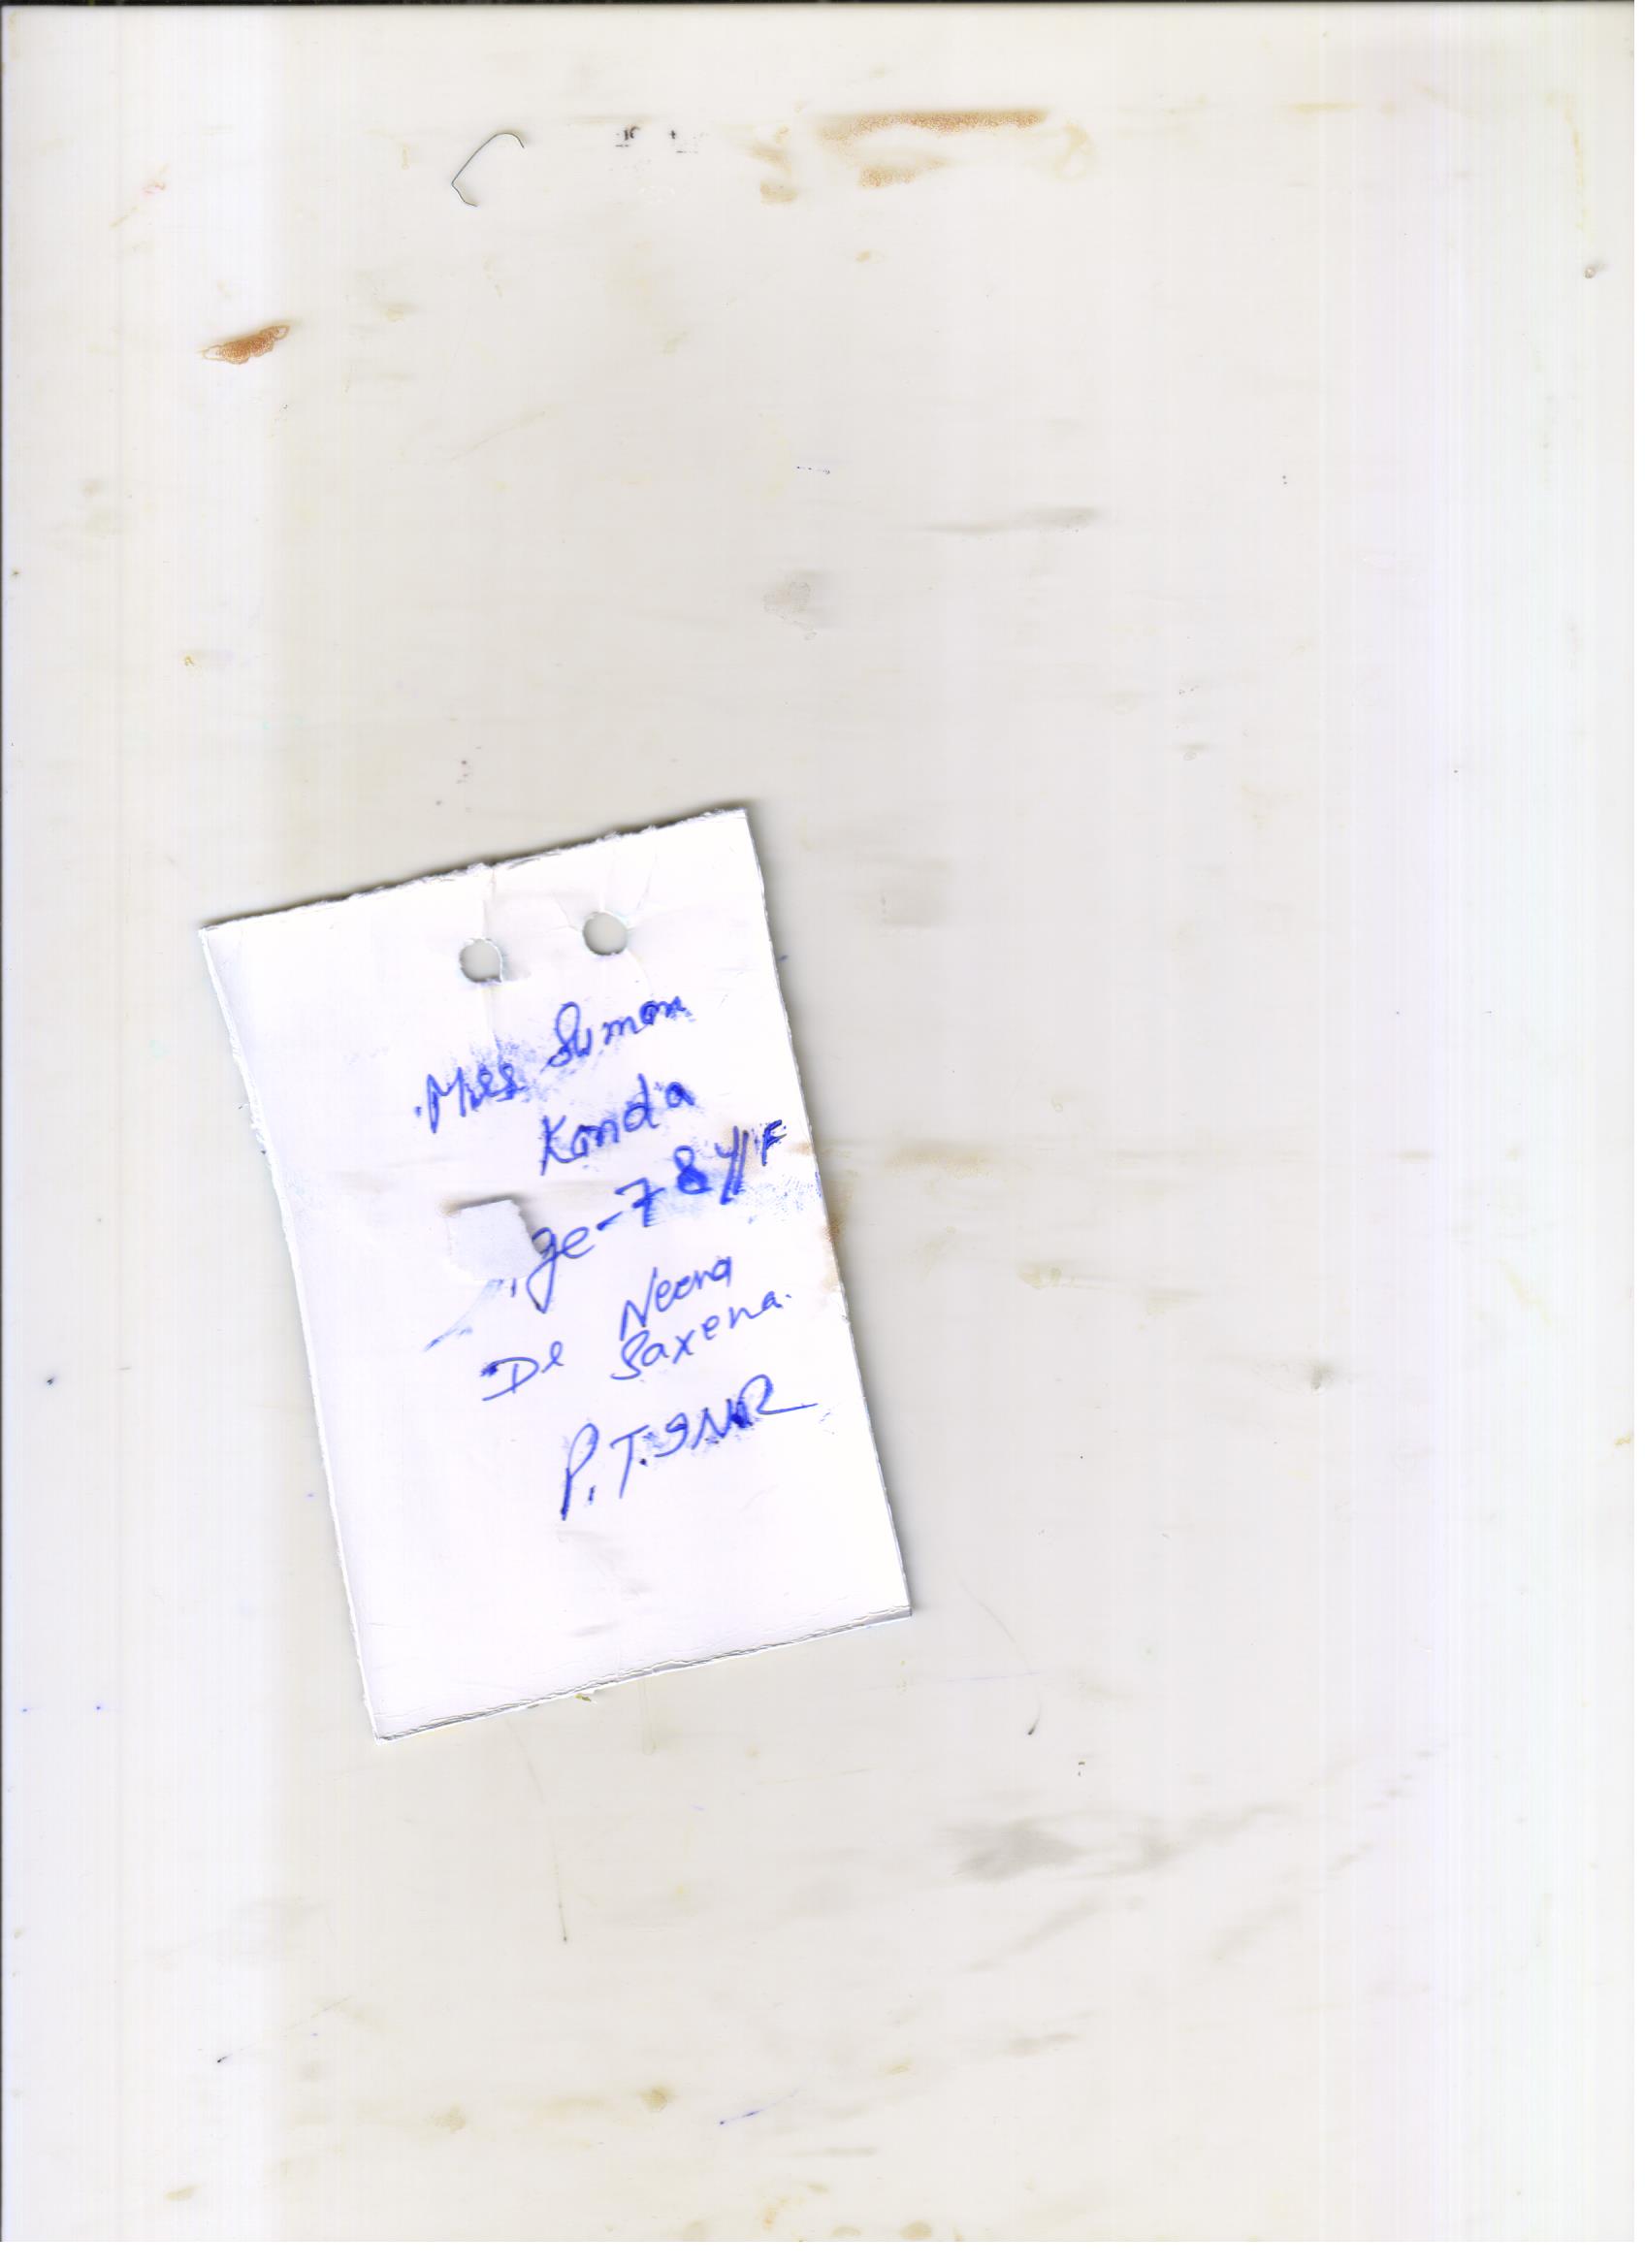 Miss Suman
Kanda
ge-78y/F
Dr Neena
Saxena.
P.T.INR